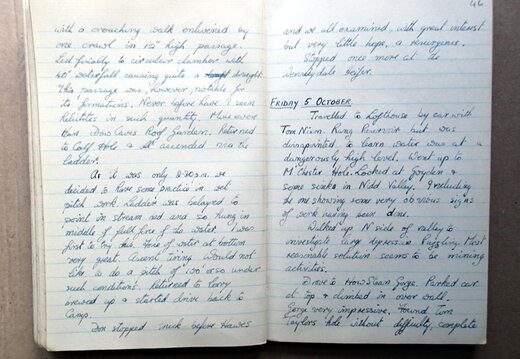 with a crouching walk enlivened by
one crawl in 15" high passage.
Led finally to circular chamber with
40' waterfall causing quite a draught.
This passage was, however, notable for
its formations. Never before have I seen
Helictites in such quantity. More even
than Dow Caves Roof Gardens. Returned
to Calf Hole & all ascended via the
ladder.
As it was only 8.30 p.m. we
decided to have some practice in wet
pitch work. Ladder was belayed to
point in stream bed and so hung in
middle of full force of the water. I was
first to try this. Force of water at bottom
very great. Ascent tiring. Would not
like to do a pitch of 100' or so under
such conditions. Returned to lorry
brewed up & started drive back to
Camp.
Don stopped truck before Hawes
46
and we all examined, with great interest
but very little hope, a resurgence.
Stopped once more at the
Wensleydale Heifer.
FRIDAY 5 OCTOBER.
Travelled to Lofthouse by car with
Tom Nixon. Rang but was
disappointed to learn water was at a
dangerously high level. Went up to
Manchester Hole. Looked at Goyden &
some sinks in Nidd Valley. Including
one showing some very obvious signs
of work having been done.
Walked up N side of valley to
investigate large depression. Puzzling. Most
reasonable solution seems to be mining
activities.
Drove to How Stean Gorge. Parked car
at top & climbed in over wall.
Gorge very impressive. Found Tom
Taylors hole without difficulty, complete